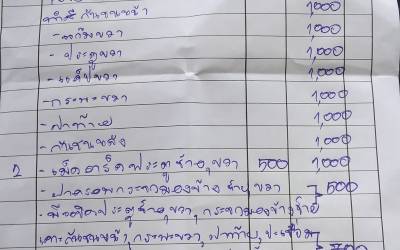 ทำสีกันชนหน้า 1,000
- แก้มขวา 1,000
- ประตูขวา 1,000
- แค้ปขวา 1,000
- กระบะขวา 1,000
- ฝาท้าย 1,000
- กันชนหลัง 1,000
2 - เม็ดอาร์ตประตูซ้าย,ขวา 500 1,000
- ฝาครอบกระจกมองข้าง ซ้าย, ขวา 500
- มือเปิดประตูซ้าย, ขวา, กระจกมองข้างซ้าย
เคาะกันชนหน้า, กระบะขวา, ฝาท้าย,